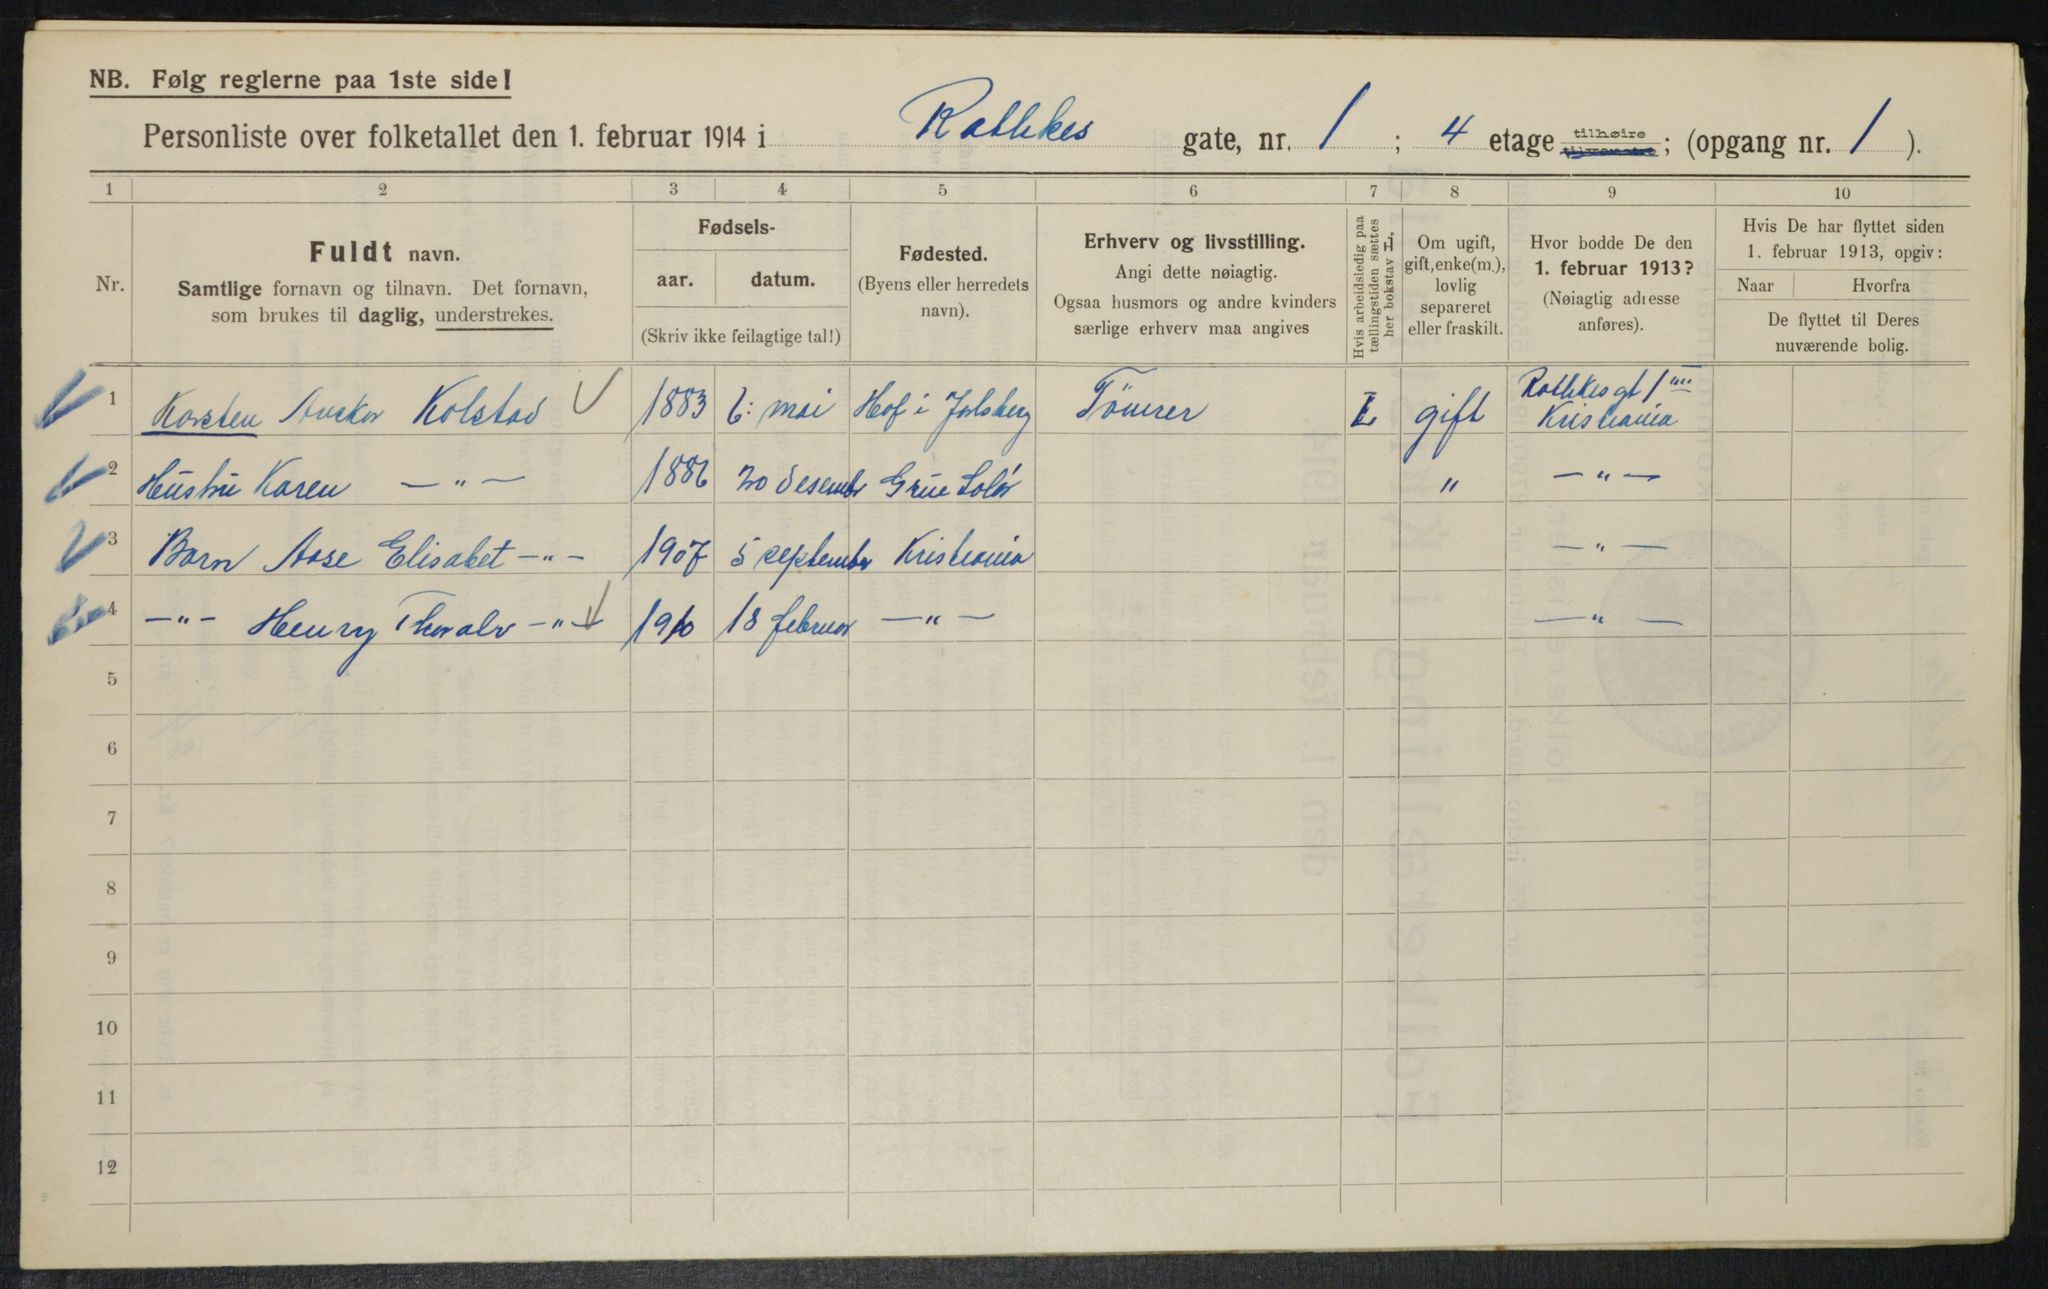 NB. Følg reglerne paa 1ste side!
Personliste over folketallet den 1. februar 1914 i Rathkes gate, nr. 1 ; 4 etage tilhøire tilvenstre; (opgang nr. 1 ).
1 2 3 4 5 6 7 8 9 10
Nr.
Fuldt navn.
Samtlige fornavn og tilnavn. Det fornavn,
som brukes til daglig, understrekes.
Fødsels-
aar. datum.
(Skriv ikke feilagtige tal!)
Fødested.
(Byens eller herredets
navn).
Erhverv og livsstilling.
Angi dette nøiagtig.
Ogsaa husmors og andre kvinders
særlige erhverv maa angives
Hvis arbeidsledig paa
tællingstiden sættes
her bokstav L.
Om ugift,
gift, enke(m.),
lovlig
separeret
eller fraskilt.
Hvor bodde De den
1. februar 1913?
(Nøiagtig adresse
anføres).
Hvis De har flyttet siden
1. februar 1913, opgiv:
Naar Hvorfra
De flyttet til Deres
nuværende bolig.
1 Karsten Kolstad 1883 6: mai Hof i Jarlsberg Tömrer L gift Rathkesgt 1 Kristiania
2 Hustru Karen — " — 1886 20 desembr Grue Solör " — " —
3 Barn Aase Elisabet — " — 1907 5 septembr Kristiania — " —
4 — " — Henry Thoralv — " — 1910 18 februar — " — — " —
5
6
7
8
9
10
11
12